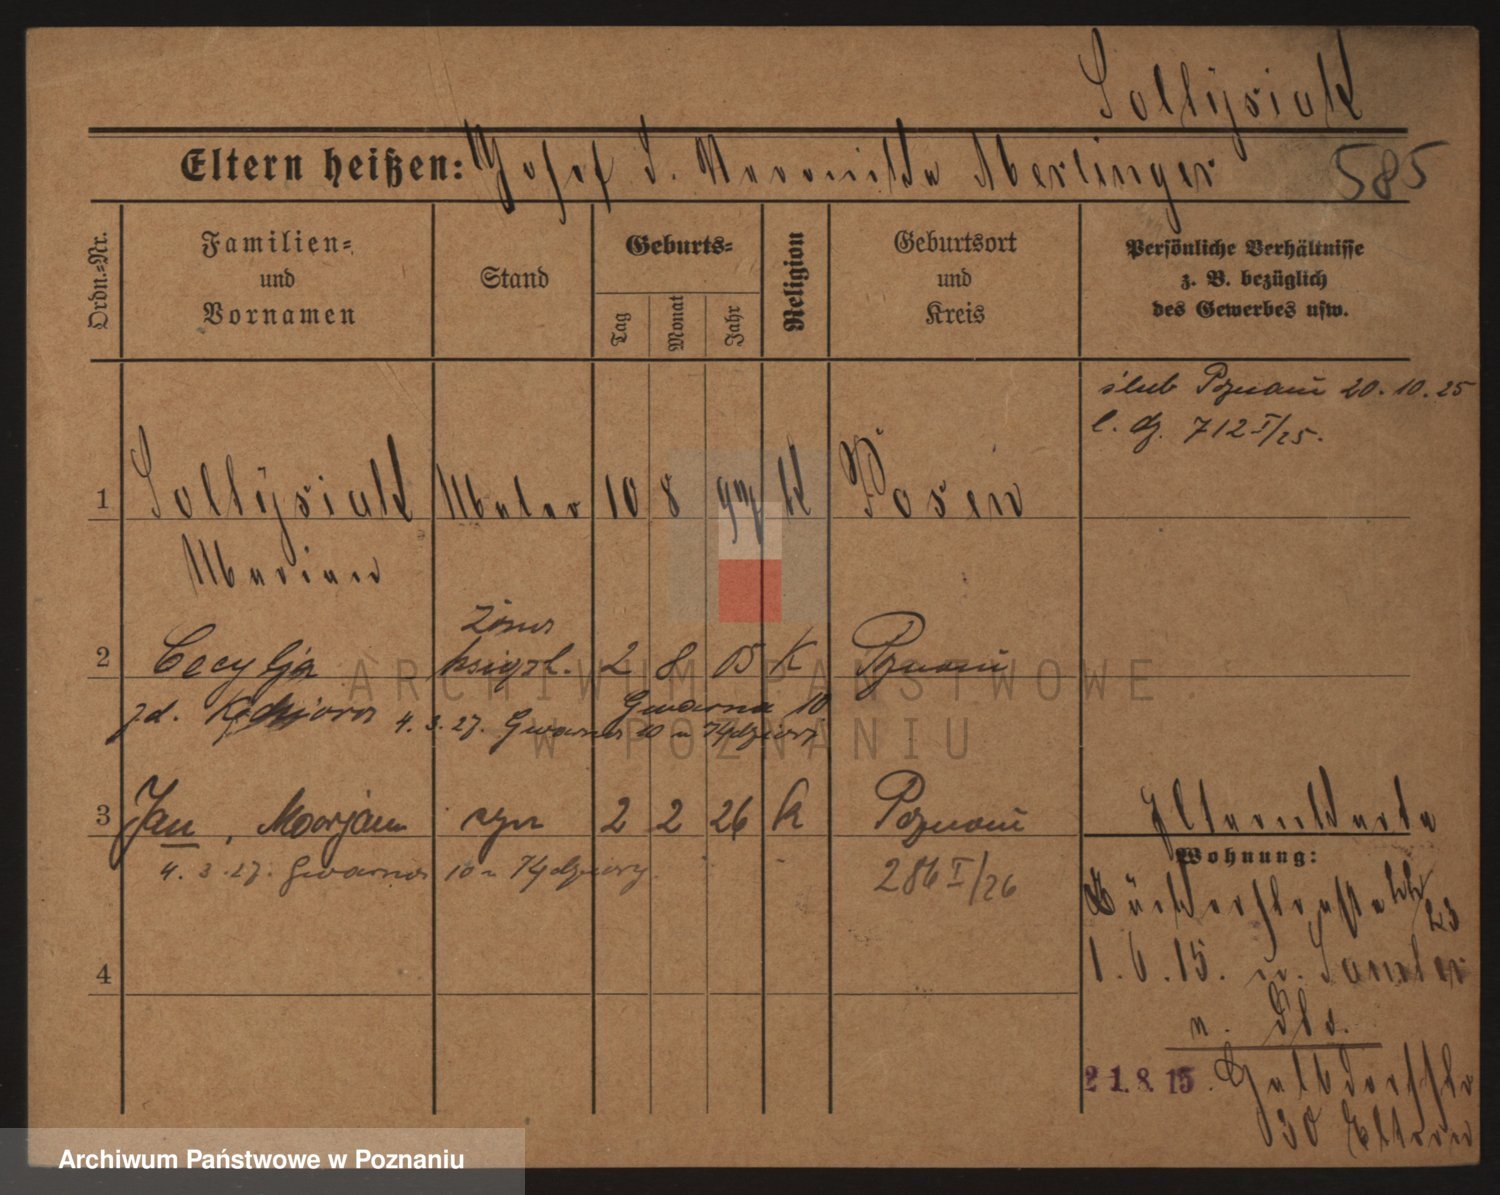 Soltysiak
Eltern heißen: Josef S. Veronika Merlinger 585
Ordn.=Nr.
Familien=
und
Vornamen
Stand
Geburts=
Tag
Monat
Jahr
Religion
Geburtsort
und
Kreis
Persönliche Verhältnisse
z. B. bezüglich
des Gewerbes usw.
ślub Poznań 20.10.25
l. dz. 712 I/25.
1 Soltysiak Maler 10 8 97 K Posen
Marian
żona
2 Cecylja książk. 2 8 05 K Poznań
zd. Gwarna 10
4.3.27. Gwarna 10 u
3 Jan, Marjan syn 2 2 26 k Poznań
4.3.27. Gwarna 10 u
286 I/26
4
Elternkarte
Wohnung:
23
1.6.15. n. Samter
n. Abs.
21.8.15.
30 Eltern
ARCHIWUM PAŃSTWOWE
W POZNANIU
Archiwum Państwowe w Poznaniu